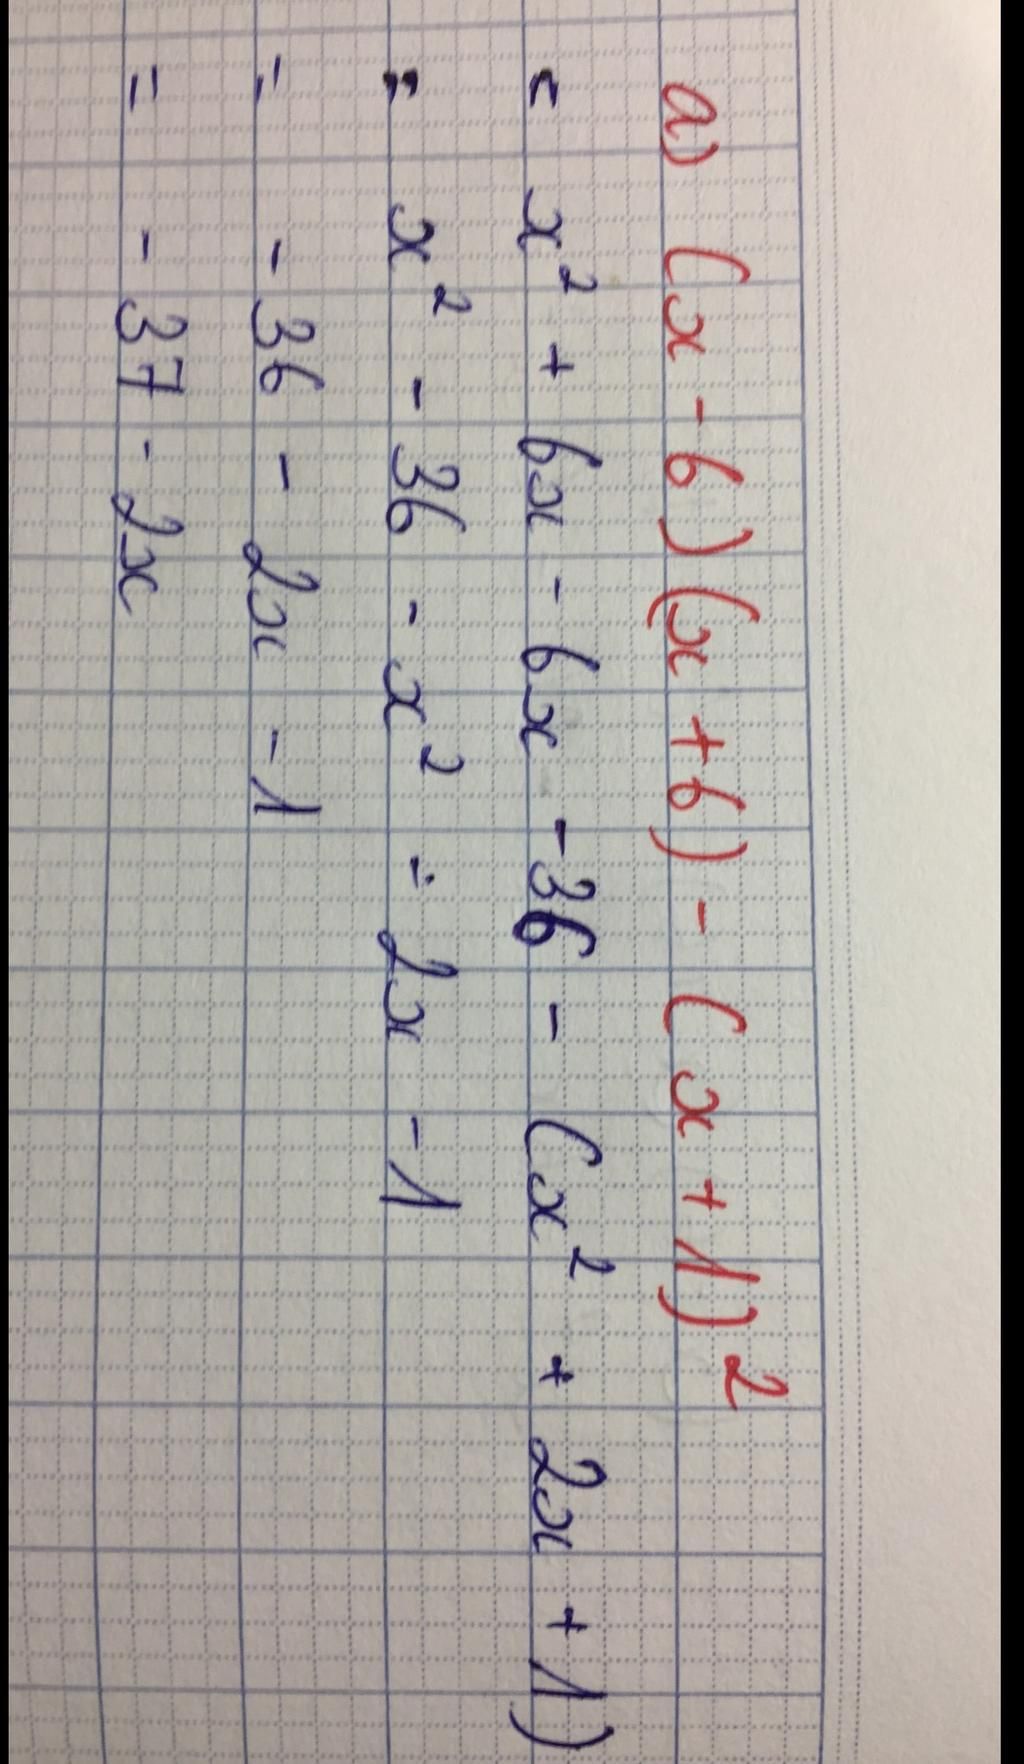 a) (x - 6)(x + 6) - (x + 1)²
= x² + 6x - 6x - 36 - (x² + 2x + 1)
= x² - 36 - x² - 2x - 1
= - 36 - 2x - 1
= - 37 - 2x